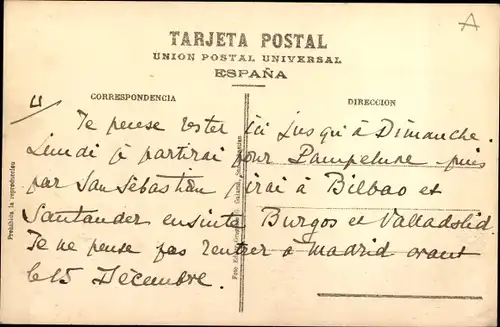 A
TARJETA POSTAL
UNION POSTAL UNIVERSAL
ESPAÑA
CORRESPONDENCIA
DIRECCION
Te pense rester ici jusqu'à Dimanche.
Lundi je partirai pour Pampelune puis
par San Sébastian irai à Bilbao et
Santander ensuite Burgos et Valladolid.
Je ne pense pas rentrer à Madrid avant
le 15 Décembre.
Prohibida la reproducción